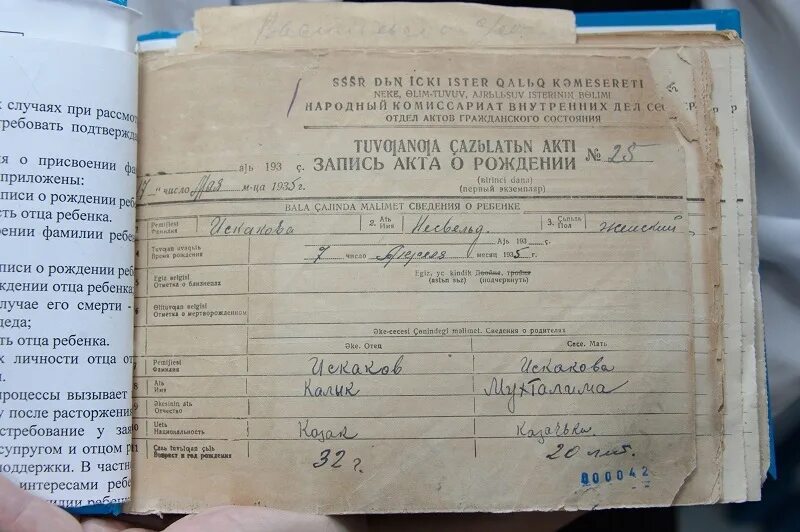 случаях при рассмот
требовать подтвержда
я о присвоении фа
приложены:
писи о рождении реб
сть отца ребенка.
рении фамилии ребе
писи о рождении реб
ждении отца ребенка
лучае его смерти -
деда;
ть отца ребенка.
х личности отца от
роцессы вызывает
у после расторжения
стребование у зая
супругом и отцом р
поддержки. В частн
интересами ребе
милии ребенка
SSSR DЬN ICKI ISTER QALЬQ KƏMESERETI
NEKE, ƟLIM-TUVUV, AJRЬLЬSUV ISTERININ BƟLIMI
НАРОДНЫЙ КОМИССАРИАТ ВНУТРЕННИХ ДЕЛ СССР
ОТДЕЛ АКТОВ ГРАЖДАНСКОГО СОСТОЯНИЯ
TUVOJANOJA ÇAZЬLATЬN AKTI
ajь 193 ç. ЗАПИСЬ АКТА О РОЖДЕНИИ № 25
7 " число Мая м-ца 1935 г. (birinci dana)
(первый экземпляр)
BALA ÇAJINDA MALIMET СВЕДЕНИЯ О РЕБЕНКЕ
1 Pemilijesi Фамилия Искакова 2. Atь Имя 3. Çьnьsь Пол женский
Tuvqan uvaqьtь Ajь 193 ç.
Время рождения 7 число месяц 1935 г.
Egiz belgisi Egiz, yc kindik Двойня, тройня
Отметка о близнецах (astьn sьz) (подчеркнуть)
Ɵlituvqan belgisi
Отметка о мертворожденном
Əke-cecesi Çɵnindegi malimet. Сведения о родителях
Əke. Отец Cece. Мать
7 Pemilijesi Фамилия Искаков Искакова
8 Atь Имя Калык Мухталима
Əkesinin atь Отчество
Uctь Национальность Казак Казачька
Çasь tuvьlqan çьlь
Возраст и год рождения 32 г. 20 лет.
000042